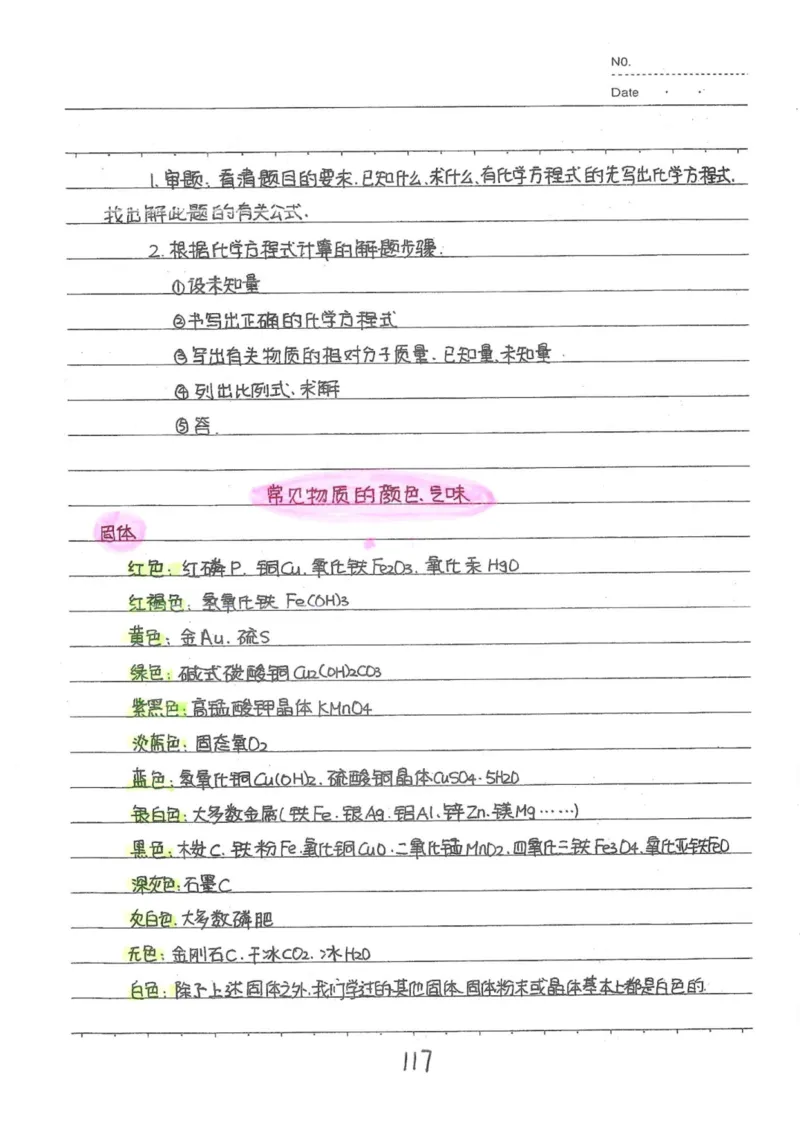 NO.
Date
1. 审题: 看清题目的要求. 已知什么. 求什么. 有化学方程式的先写出化学方程式.
找出解此题的有关公式.
2. 根据化学方程式计算的解题步骤.
①设未知量
②书写出正确的化学方程式
③写出有关物质的相对分子质量. 已知量. 未知量.
④列出比例式、求解
⑤答.
常见物质的颜色.气味
固体
红色: 红磷P. 铜Cu. 氧化铁Fe2O3. 氧化汞HgO
红褐色: 氢氧化铁 Fe(OH)3
黄色: 金Au. 硫S
绿色: 碱式碳酸铜Cu2(OH)2CO3
紫黑色: 高锰酸钾晶体KMnO4
淡蓝色: 固态氧O2
蓝色: 氢氧化铜Cu(OH)2. 硫酸铜晶体CuSO4·5H2O
银白色: 大多数金属(铁Fe. 银Ag. 铝Al. 锌Zn. 镁Mg……)
黑色: 木炭C. 铁粉Fe. 氧化铜CuO. 二氧化锰MnO2. 四氧化三铁Fe3O4. 氧化亚铁FeO
深灰色: 石墨C
灰白色. 大多数磷肥
无色: 金刚石C. 干冰CO2. 冰H2O
白色: 除了上述固体之外. 我们学过的其他固体. 固体粉末或晶体基本上都是白色的.
117